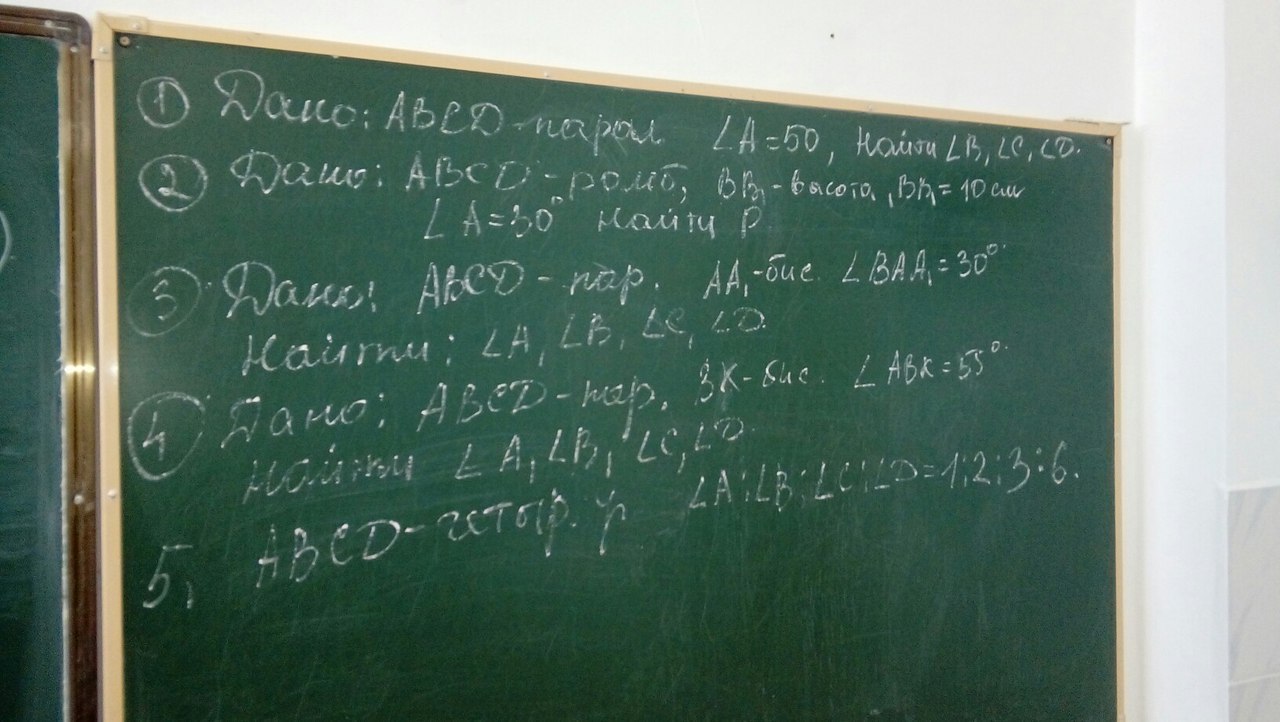 ① Дано: ABCD - парал ∠A=50, Найти ∠B, ∠C, ∠D.
② Дано: ABCD - ромб, BB₁ - высота, BB₁ = 10 см
∠A=30° найти P
③ Дано: ABCD - пар. AA₁ - бис. ∠BAA₁ = 30°.
Найти: ∠A, ∠B, ∠C, ∠D.
④ Дано: ABCD - пар. BK - бис. ∠ABK = 55°.
Найти ∠A, ∠B, ∠C, ∠D.
5, ABCD - четыр. ∠A:∠B:∠C:∠D=1:2:3:6.